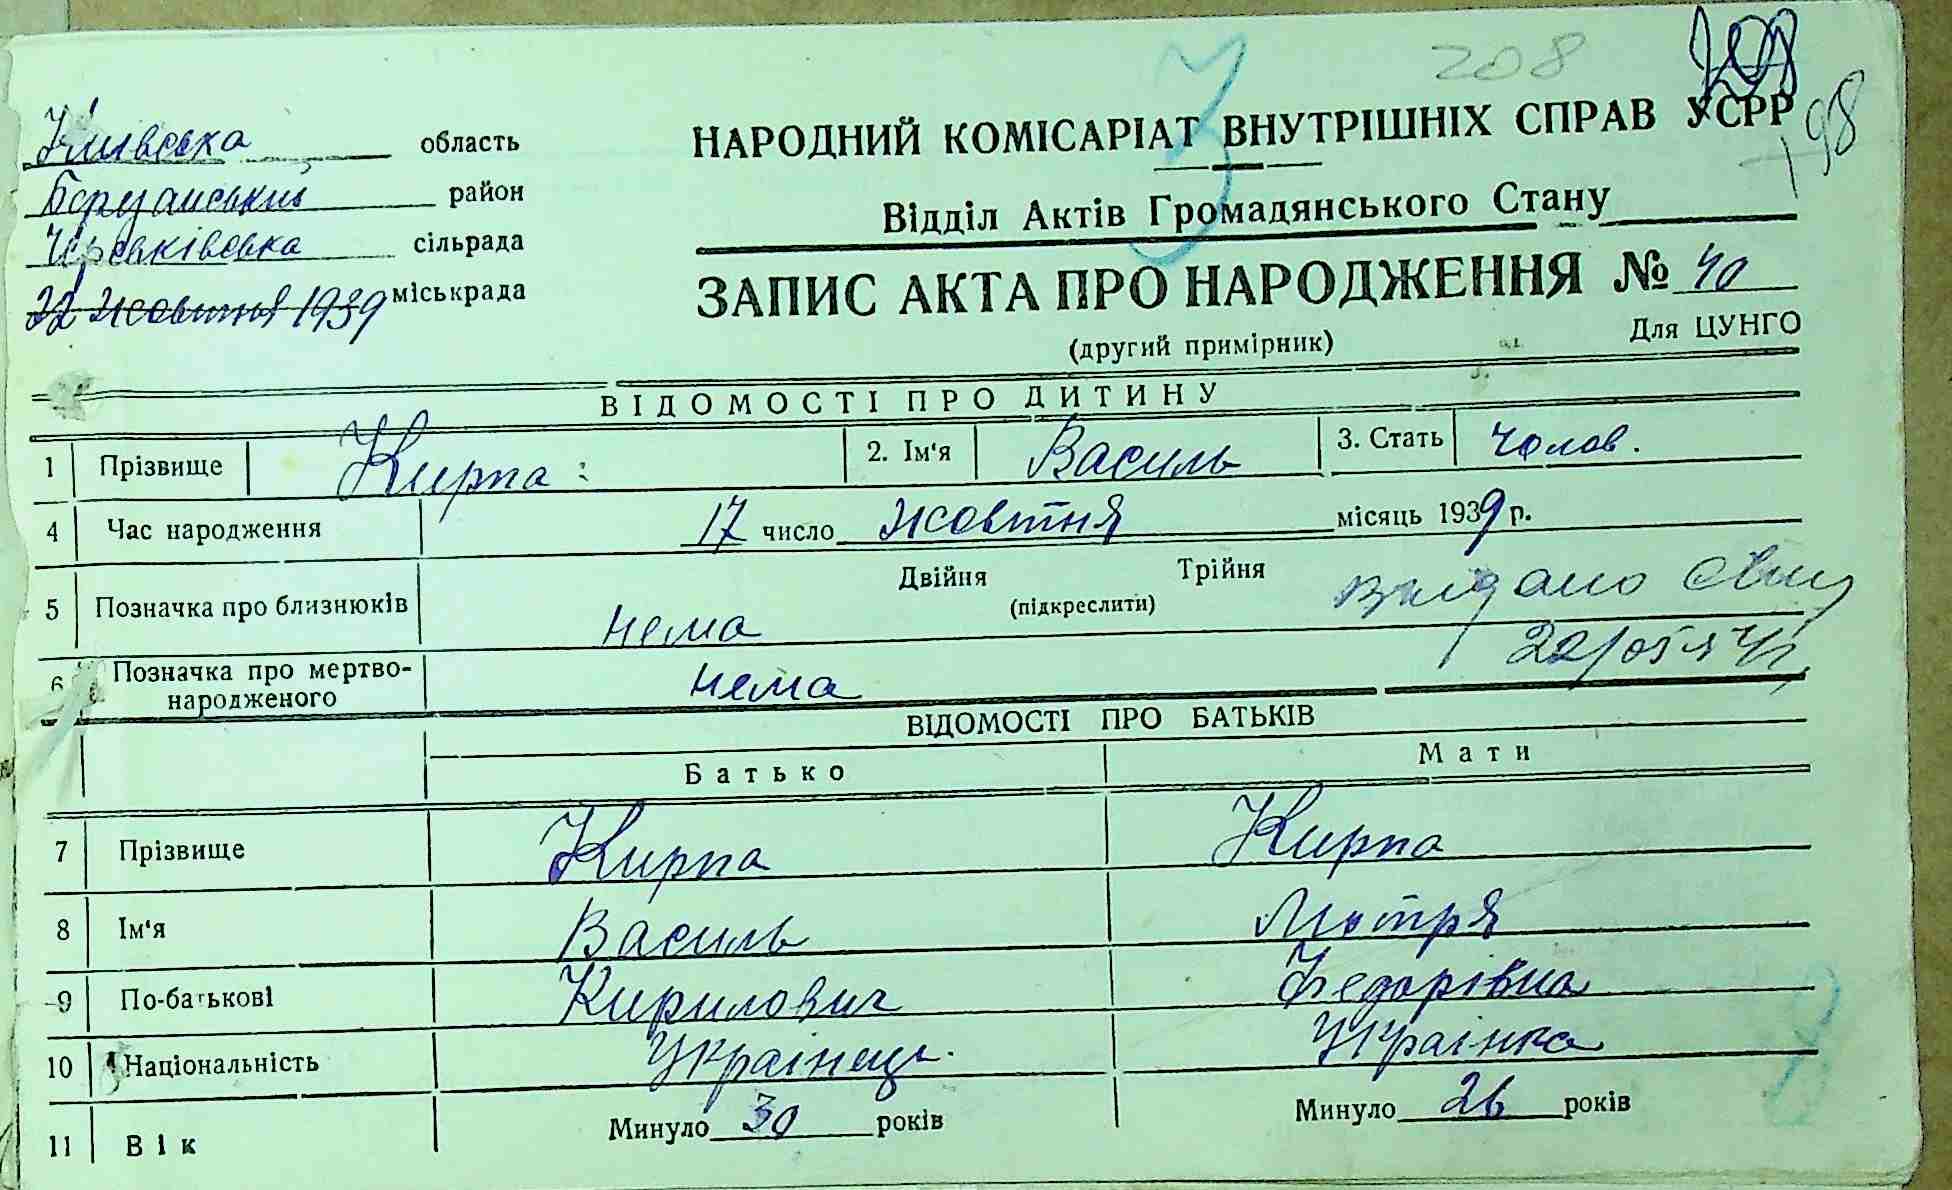 208
198
Київська область
НАРОДНИЙ КОМІСАРІАТ ВНУТРІШНІХ СПРАВ УСРР
район
Відділ Актів Громадянського Стану
сільрада
22 жовтня 1939 міськрада
ЗАПИС АКТА ПРО НАРОДЖЕННЯ № 40
(другий примірник)
Для ЦУНГО
ВІДОМОСТІ ПРО ДИТИНУ
1 Прізвище Кирпа: 2. Ім'я Василь 3. Стать чолов.
4 Час народження 17 число жовтня місяць 1939 р.
5 Позначка про близнюків нема Двійня Трійня
(підкреслити)
видано
6 Позначка про мертво-
народженого нема
ВІДОМОСТІ ПРО БАТЬКІВ
Батько Мати
7 Прізвище Кирпа Кирпа
8 Ім'я Василь Мотря
9 По-батькові Кирилович Федорівна
10 Національність Українець. Українка
11 Вік Минуло 30 років Минуло 26 років